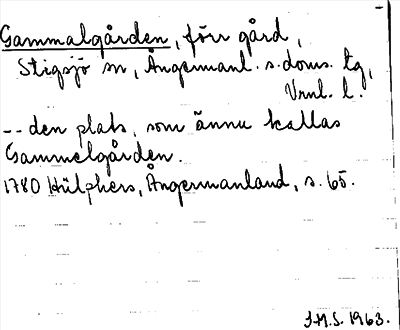 Gammalgården, förr gård,
Stigsjö sn, Ångermanl. s. doms. tg,
Vrnl. l.
-- den plats, som ännu kallas
Gammelgården.
1780 Hülphers, Ångermanland, s. 65.
J.M.S. 1963.